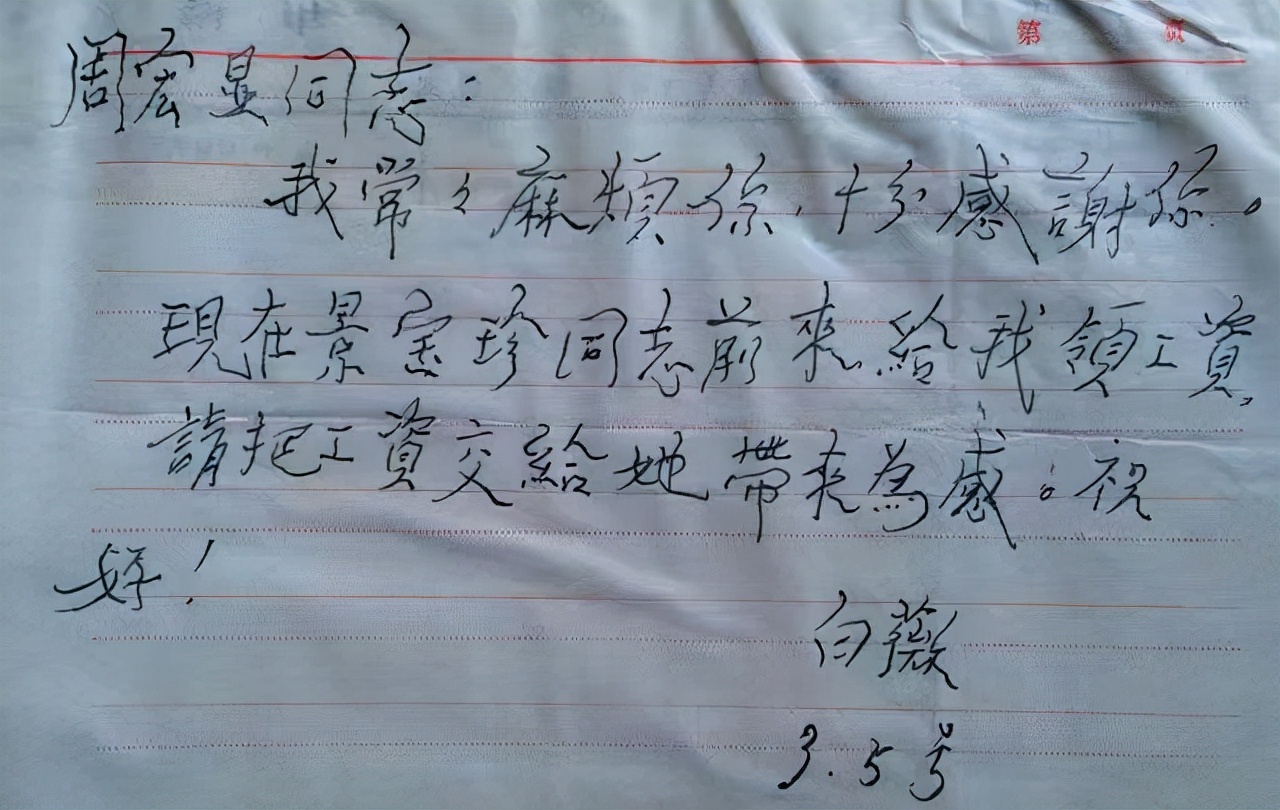 第 頁
周宏显同志：
我常々麻煩你，十分感謝你。
現在景宝珍同志前來給我領工資，
請把工資交給她帶来為感。祝
好！
白薇
3.5号